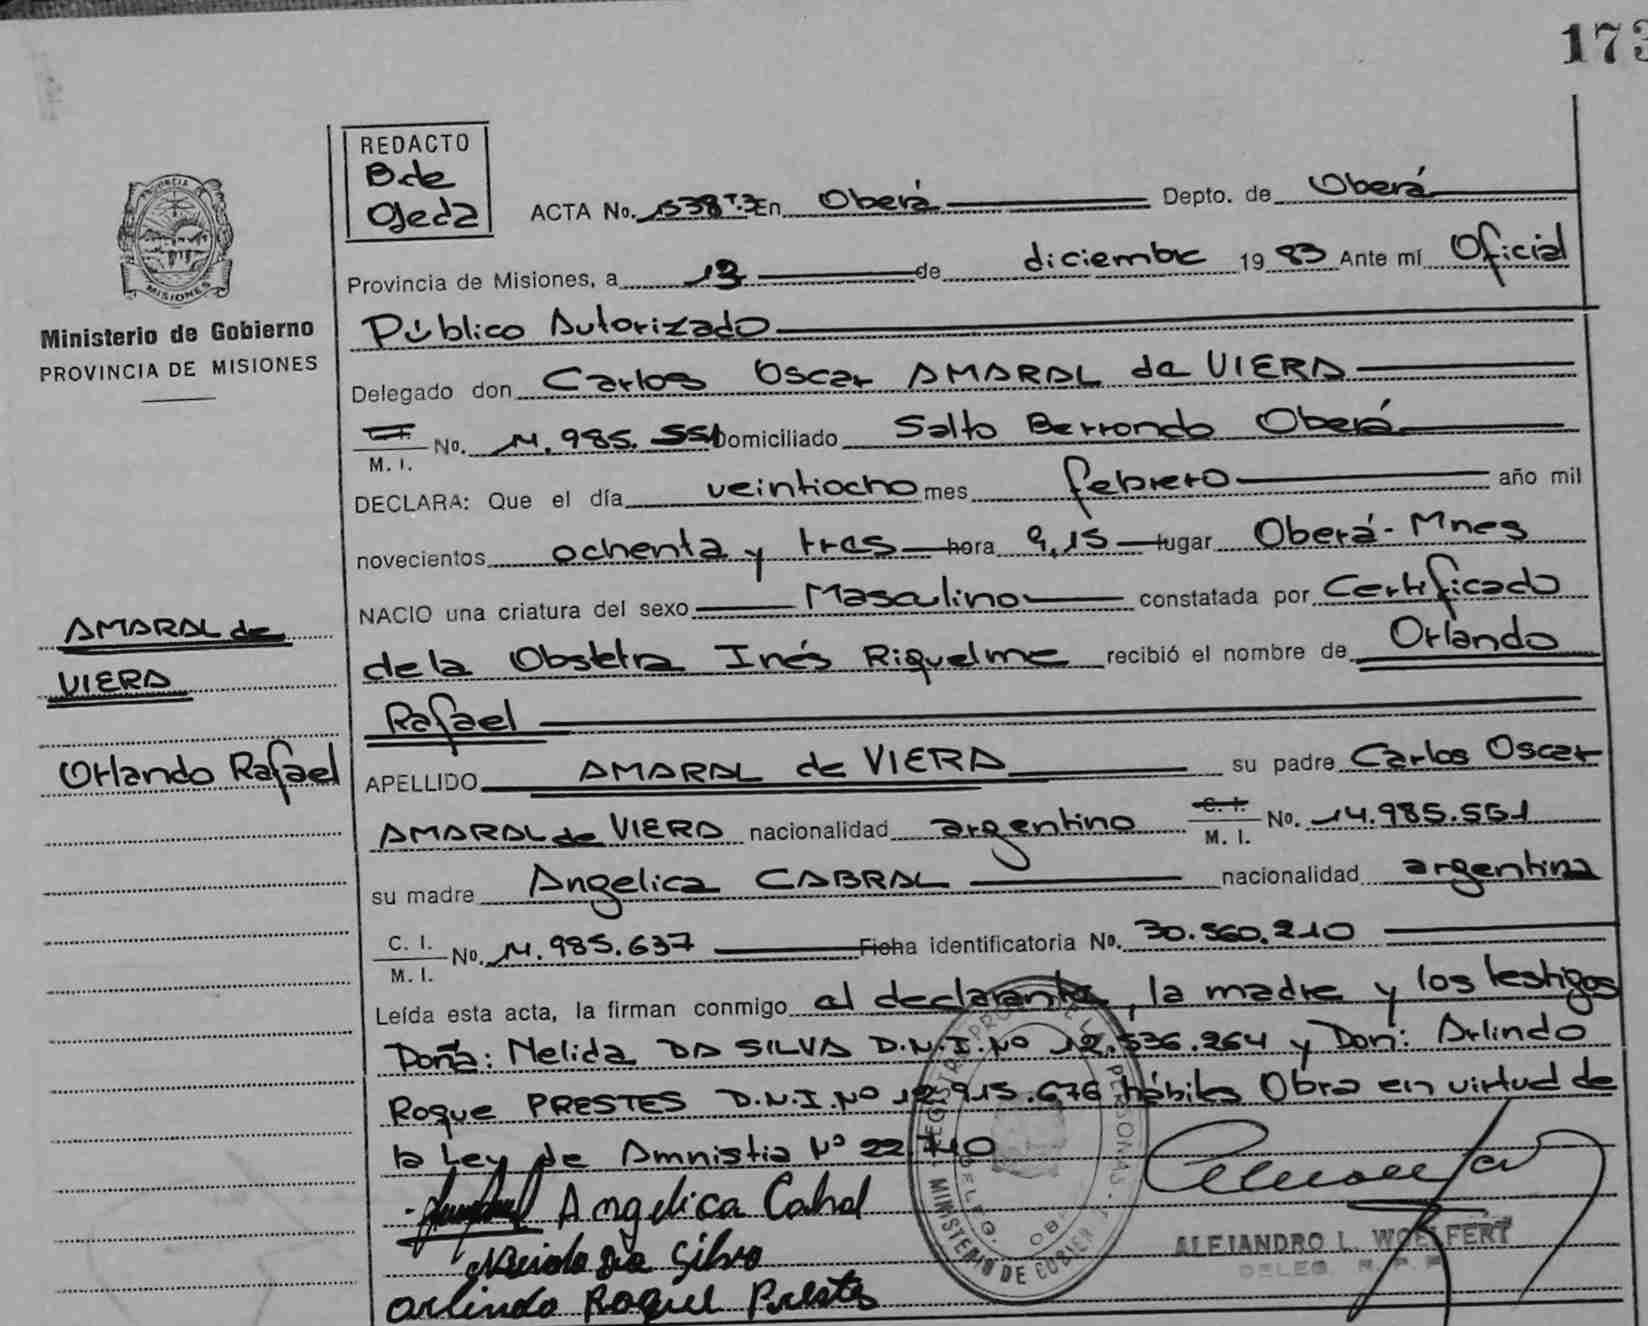 173
REDACTO
B. de
Ojeda
ACTA No. 1538 T.3 En Oberá Depto. de Oberá
Provincia de Misiones, a 13 de diciembre 1983 Ante mí Oficial
Público Autorizado
Delegado don Carlos Oscar AMARAL de VIERA
M. I. No. 14.985.551 Domiciliado Salto Berrondo Oberá
DECLARA: Que el día veintiocho mes febrero año mil
novecientos ochenta y tres hora 9,15 lugar Oberá - Mnes
NACIO una criatura del sexo Masculino constatada por Certificado
de la Obstetra Inés Riquelme recibió el nombre de Orlando
Rafael
APELLIDO AMARAL de VIERA su padre Carlos Oscar
AMARAL de VIERA nacionalidad argentino C. I. M. I. No. 14.985.551
su madre Angelica CABRAL nacionalidad argentina
C. I. M. I. No. 14.985.637 Ficha identificatoria No. 30.560.210
Leída esta acta, la firman conmigo el declarante, la madre y los testigos
Doña: Nelida DA SILVA D.N.I. Nº 12.536.264 y Don: Arlindo
Roque PRESTES D.N.I. Nº 12.915.676 hábiles Obra en virtud de
la Ley de Amnistia Nº 22.710
Angelica Cabral
Da Silva
Arlindo Roque Prestes
ALEJANDRO L. WOELFERT
DELEG. R. P. P.
REGISTRO PROV. DE LAS PERSONAS
MINISTERIO DE GOBIERNO
DELEG. OBERA
PROVINCIA DE
MISIONES
Ministerio de Gobierno
PROVINCIA DE MISIONES
AMARAL de
VIERA
Orlando Rafael